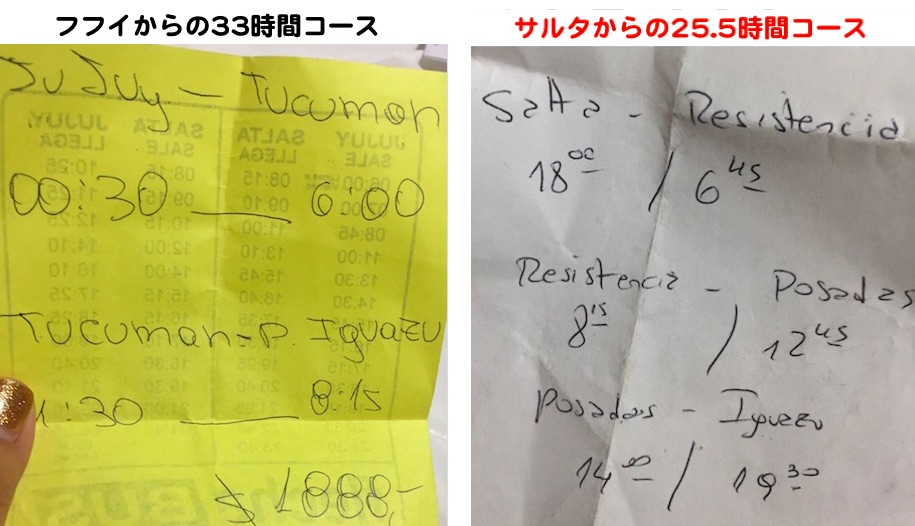 フフイからの33時間コース
JUJUy — Tucuman
00:30 — 6:00
Tucuman - P. Iguazu
1:30 — 8:15
$ 1888,-
サルタからの25.5時間コース
Salta - Resistencia
18 00 / 6 45
Resistencia - Posadas
8 15 / 12 45
Posadas - Iguazu
14 00 / 19 30